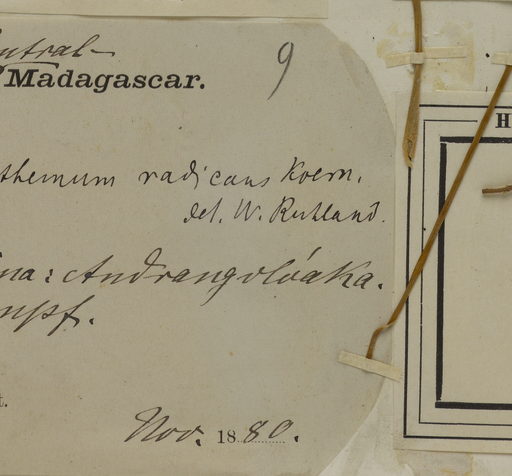 ntral-
Madagascar.
9
H
themum radicans Koern.
det. W. Ruhland.
na: Andrangolóaka.
mpf.
t.
Nov. 1880.